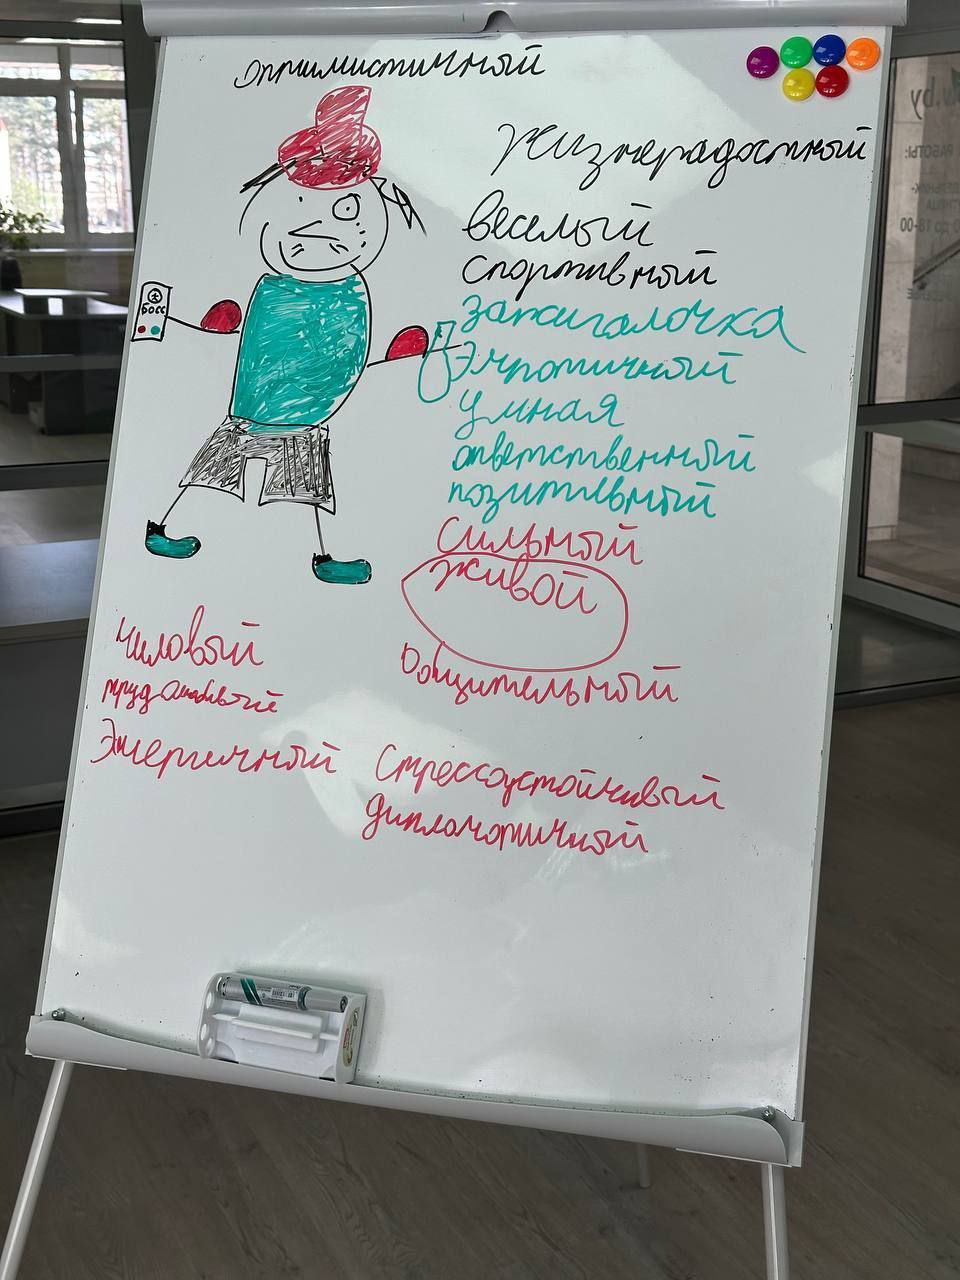 оптимистичный
жизнерадостный
веселый
спортивный
БОСС
зажигалочка
умная
ответственный
позитивный
сильный
живой
Общительный
чиловый
трудолюбивый
Энергичный
Стрессоустойчивый
дипломатичный